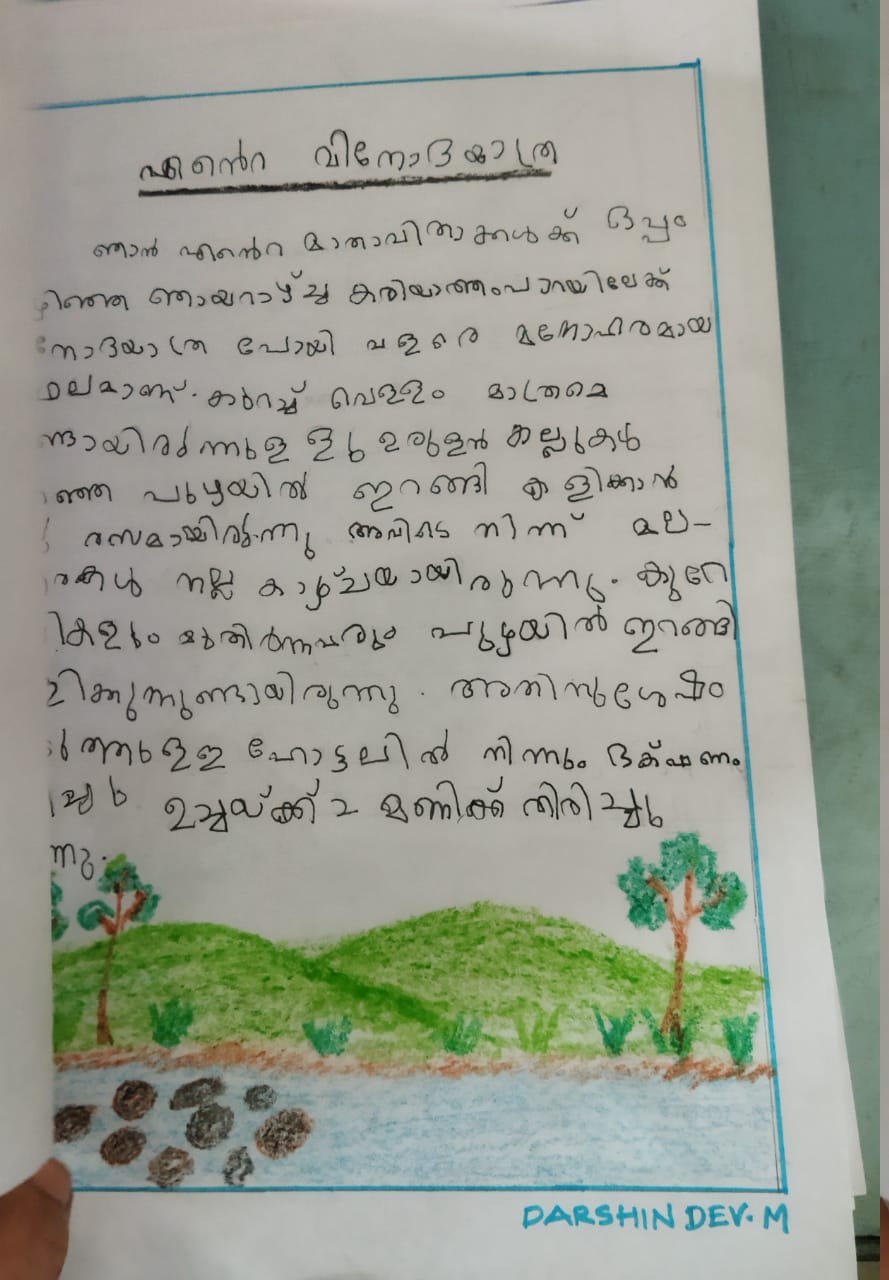 എൻെറ വിനോദയാത്ര
ഞാൻ എൻെറ മാതാവിതാക്കൾക്ക് ഒപ്പം
ഴിഞ്ഞ ഞായറാഴ്ച്ച കരിയാത്തംപാറയിലേക്ക്
നോദയാത്ര പോയി വളരെ മനോഹരമായ
ഥലമാണ്. കുറച്ച് വെള്ളം മാത്രമെ
ണ്ടായിരുന്നുള്ളൂ ഉരുളൻ കല്ലുകൾ
ഞ്ഞ പുഴയിൽ ഇറങ്ങി കളിക്കാൻ
രസമായിരുന്നു അവിടെ നിന്ന് മല-
രകൾ നല്ല കാഴ്ചയായിരുന്നു. കുറേ
ികളും മുതിർന്നവരും പുഴയിൽ ഇറങ്ങി
ളിക്കുന്നുണ്ടായിരുന്നു. അതിനുശേഷം
ടുത്തുള്ള ഹോട്ടലിൽ നിന്നും ഭക്ഷണം
ച്ചു ഉച്ചയ്ക്ക് 2 മണിക്ക് തിരിച്ചു
ന്നു.
DARSHIN DEV. M